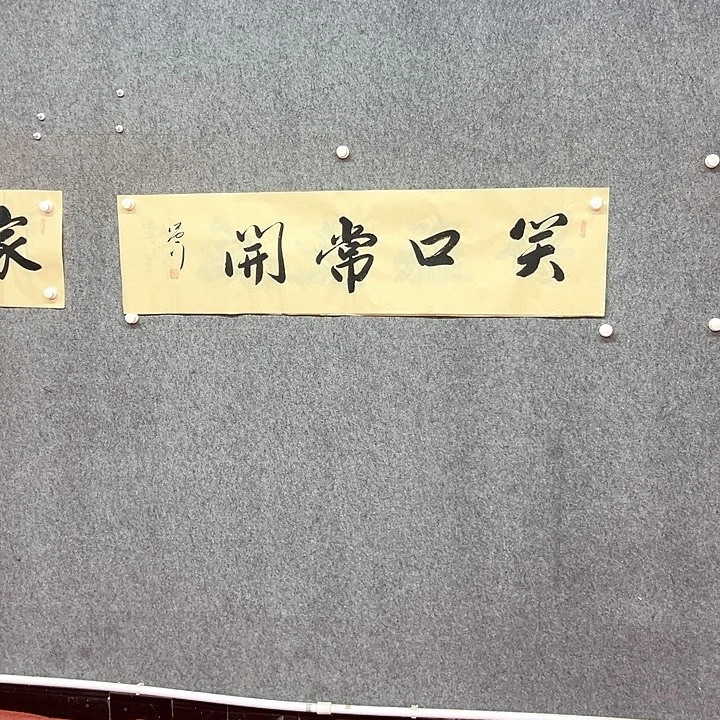 笑口常開
家